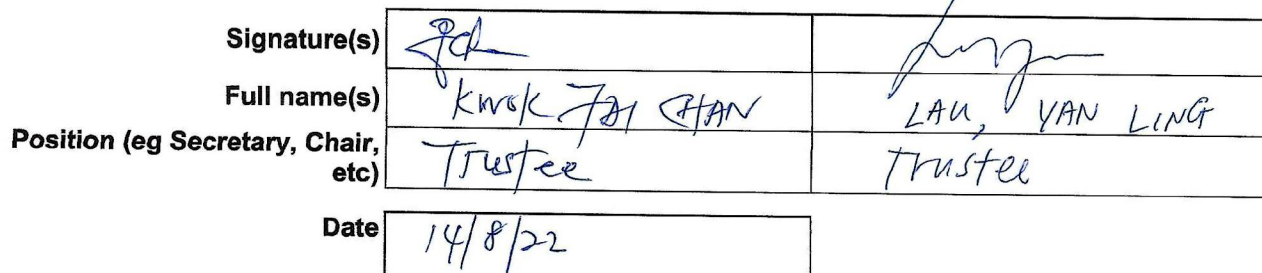 Signature(s)
Full name(s) Kwok FAI CHAN LAU, YAN LING
Position (eg Secretary, Chair,
etc) Trustee Trustee
Date 14/8/22